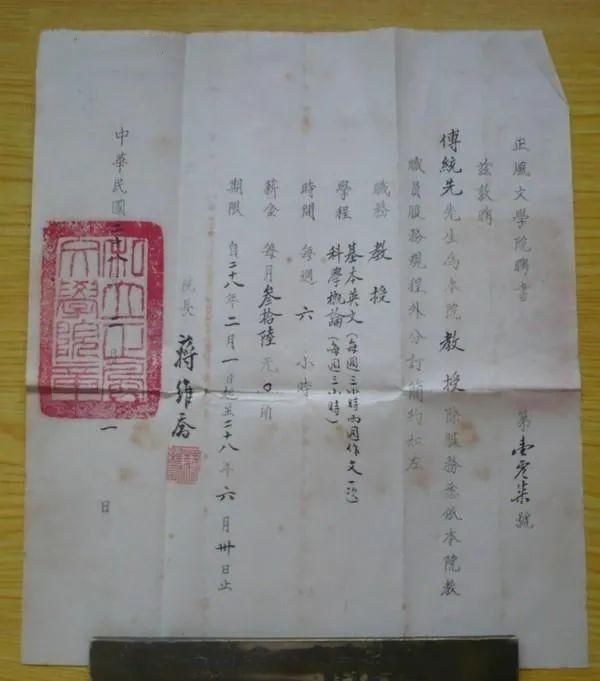 正風文學院聘書 第壹零柒號
茲敦聘
傅統先先生為本院教授除服務悉依本院教
職員服務規程外分訂簡約如左
職務 教授
學程 基本英文(每週三小時兩周作文一次)
科學概論(每週三小時)
時間 每週六小時
薪金 每月叁拾陸元〇角
期限 自二十八年二月一日起至二十八年六月卅日止
院長 蔣維喬
中華民國二十八 二 一 日
私立正風文學院章